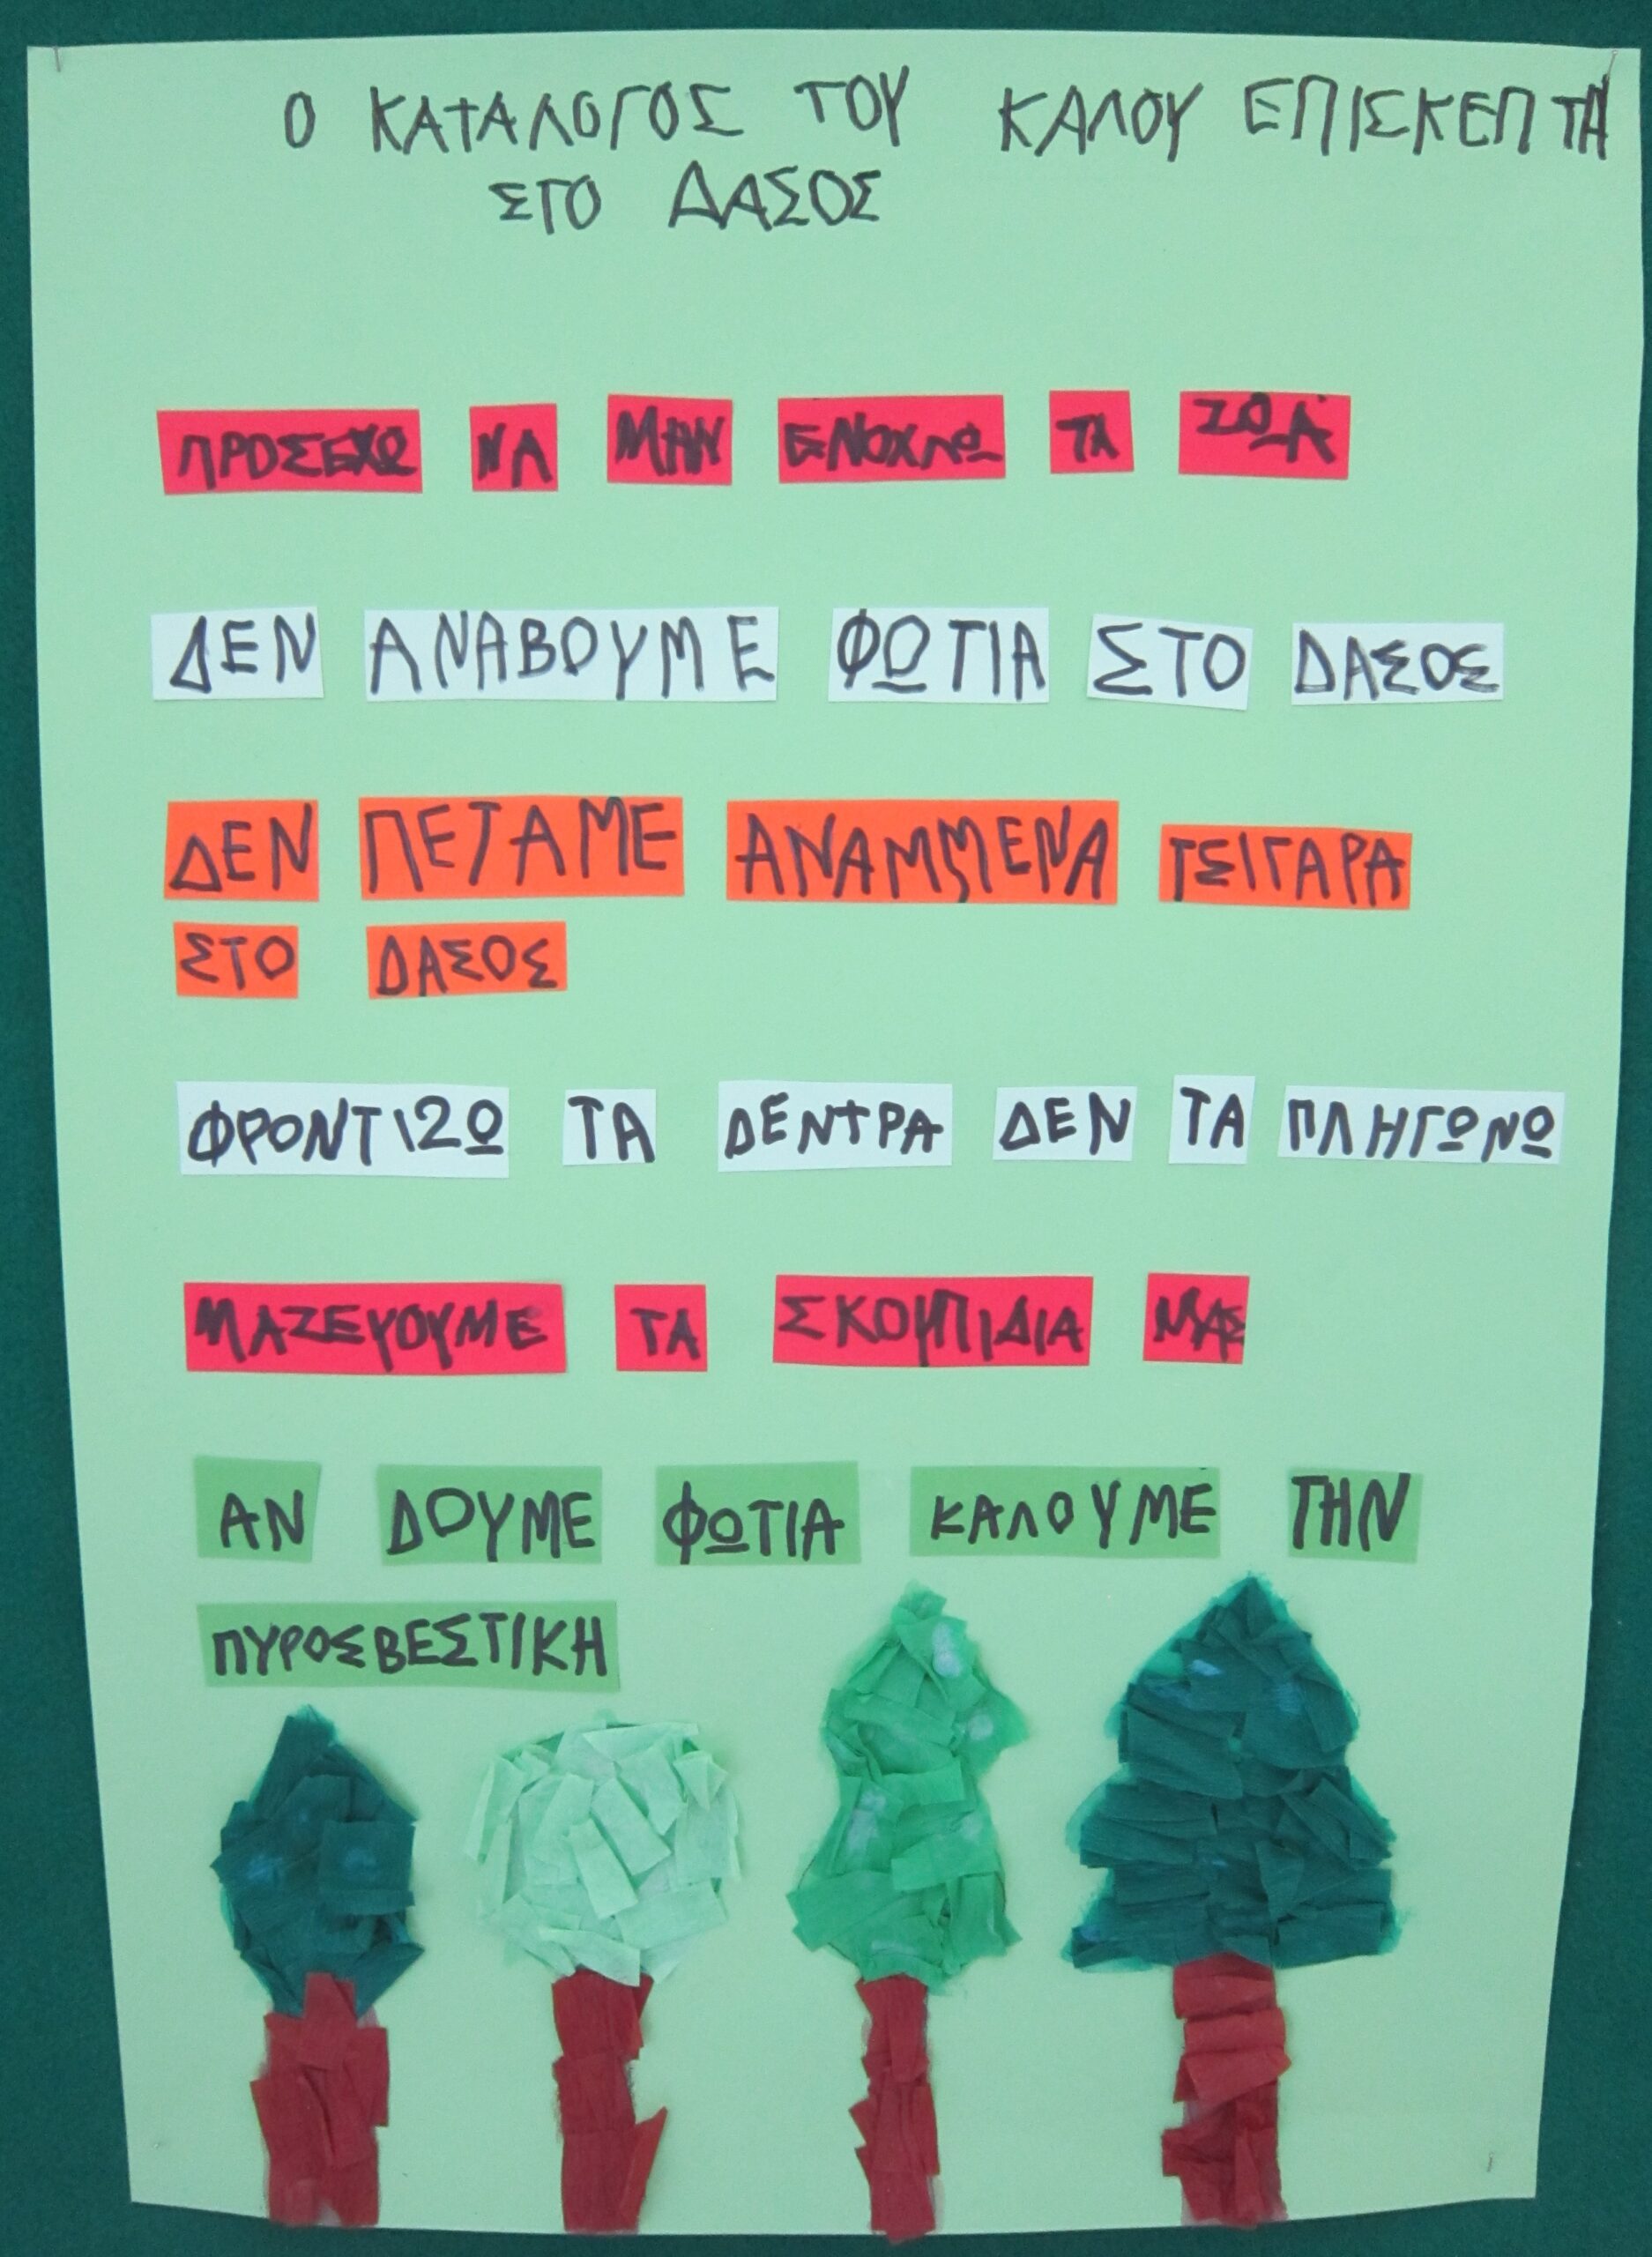 Ο ΚΑΤΑΛΟΓΟΣ ΤΟΥ ΚΑΛΟΥ ΕΠΙΣΚΕΠΤΗ
ΣΤΟ ΔΑΣΟΣ
ΠΡΟΣΕΧΩ ΝΑ ΜΗΝ ΕΝΟΧΛΩ ΤΑ ΖΩΑ
ΔΕΝ ΑΝΑΒΟΥΜΕ ΦΩΤΙΑ ΣΤΟ ΔΑΣΟΣ
ΔΕΝ ΠΕΤΑΜΕ ΑΝΑΜΜΕΝΑ ΤΣΙΓΑΡΑ
ΣΤΟ ΔΑΣΟΣ
ΦΡΟΝΤΙΖΩ ΤΑ ΔΕΝΤΡΑ ΔΕΝ ΤΑ ΠΛΗΓΩΝΩ
ΜΑΖΕΥΟΥΜΕ ΤΑ ΣΚΟΥΠΙΔΙΑ ΜΑΣ
ΑΝ ΔΟΥΜΕ ΦΩΤΙΑ ΚΑΛΟΥΜΕ ΤΗΝ
ΠΥΡΟΣΒΕΣΤΙΚΗ